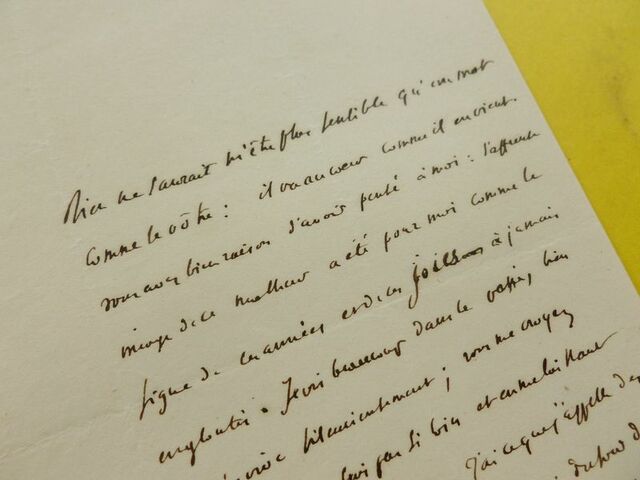 Rien ne saurait m'être plus sensible qu'un mot
comme le vôtre : il va au coeur comme il en vient.
vous avez bien raison d'avoir pensé à moi : l'affreuse
image de ce malheur a été pour moi comme le
signe de ces années et de ces joies à jamais
englouties. Je vis beaucoup dans le passé, bien
silencieusement ; vous me croyez
si bien et en me laissant
J'ai ce que j'appelle des